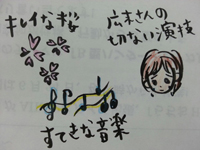 キレイな桜
広末さんの
切ない演技
すてきな音楽